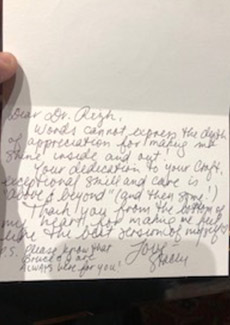 Dear Dr. Rejh,
Words cannot express the depth
of appreciation for making me
shine inside and out!
Your dedication to your craft,
exceptional smile and care is
"above & beyond" (and then some!)
I thank you from the bottom of
my heart for making me feel
like the best version of myself!
Love
P.S. Please know that
Bruce & I are
always here for you!
Stacey